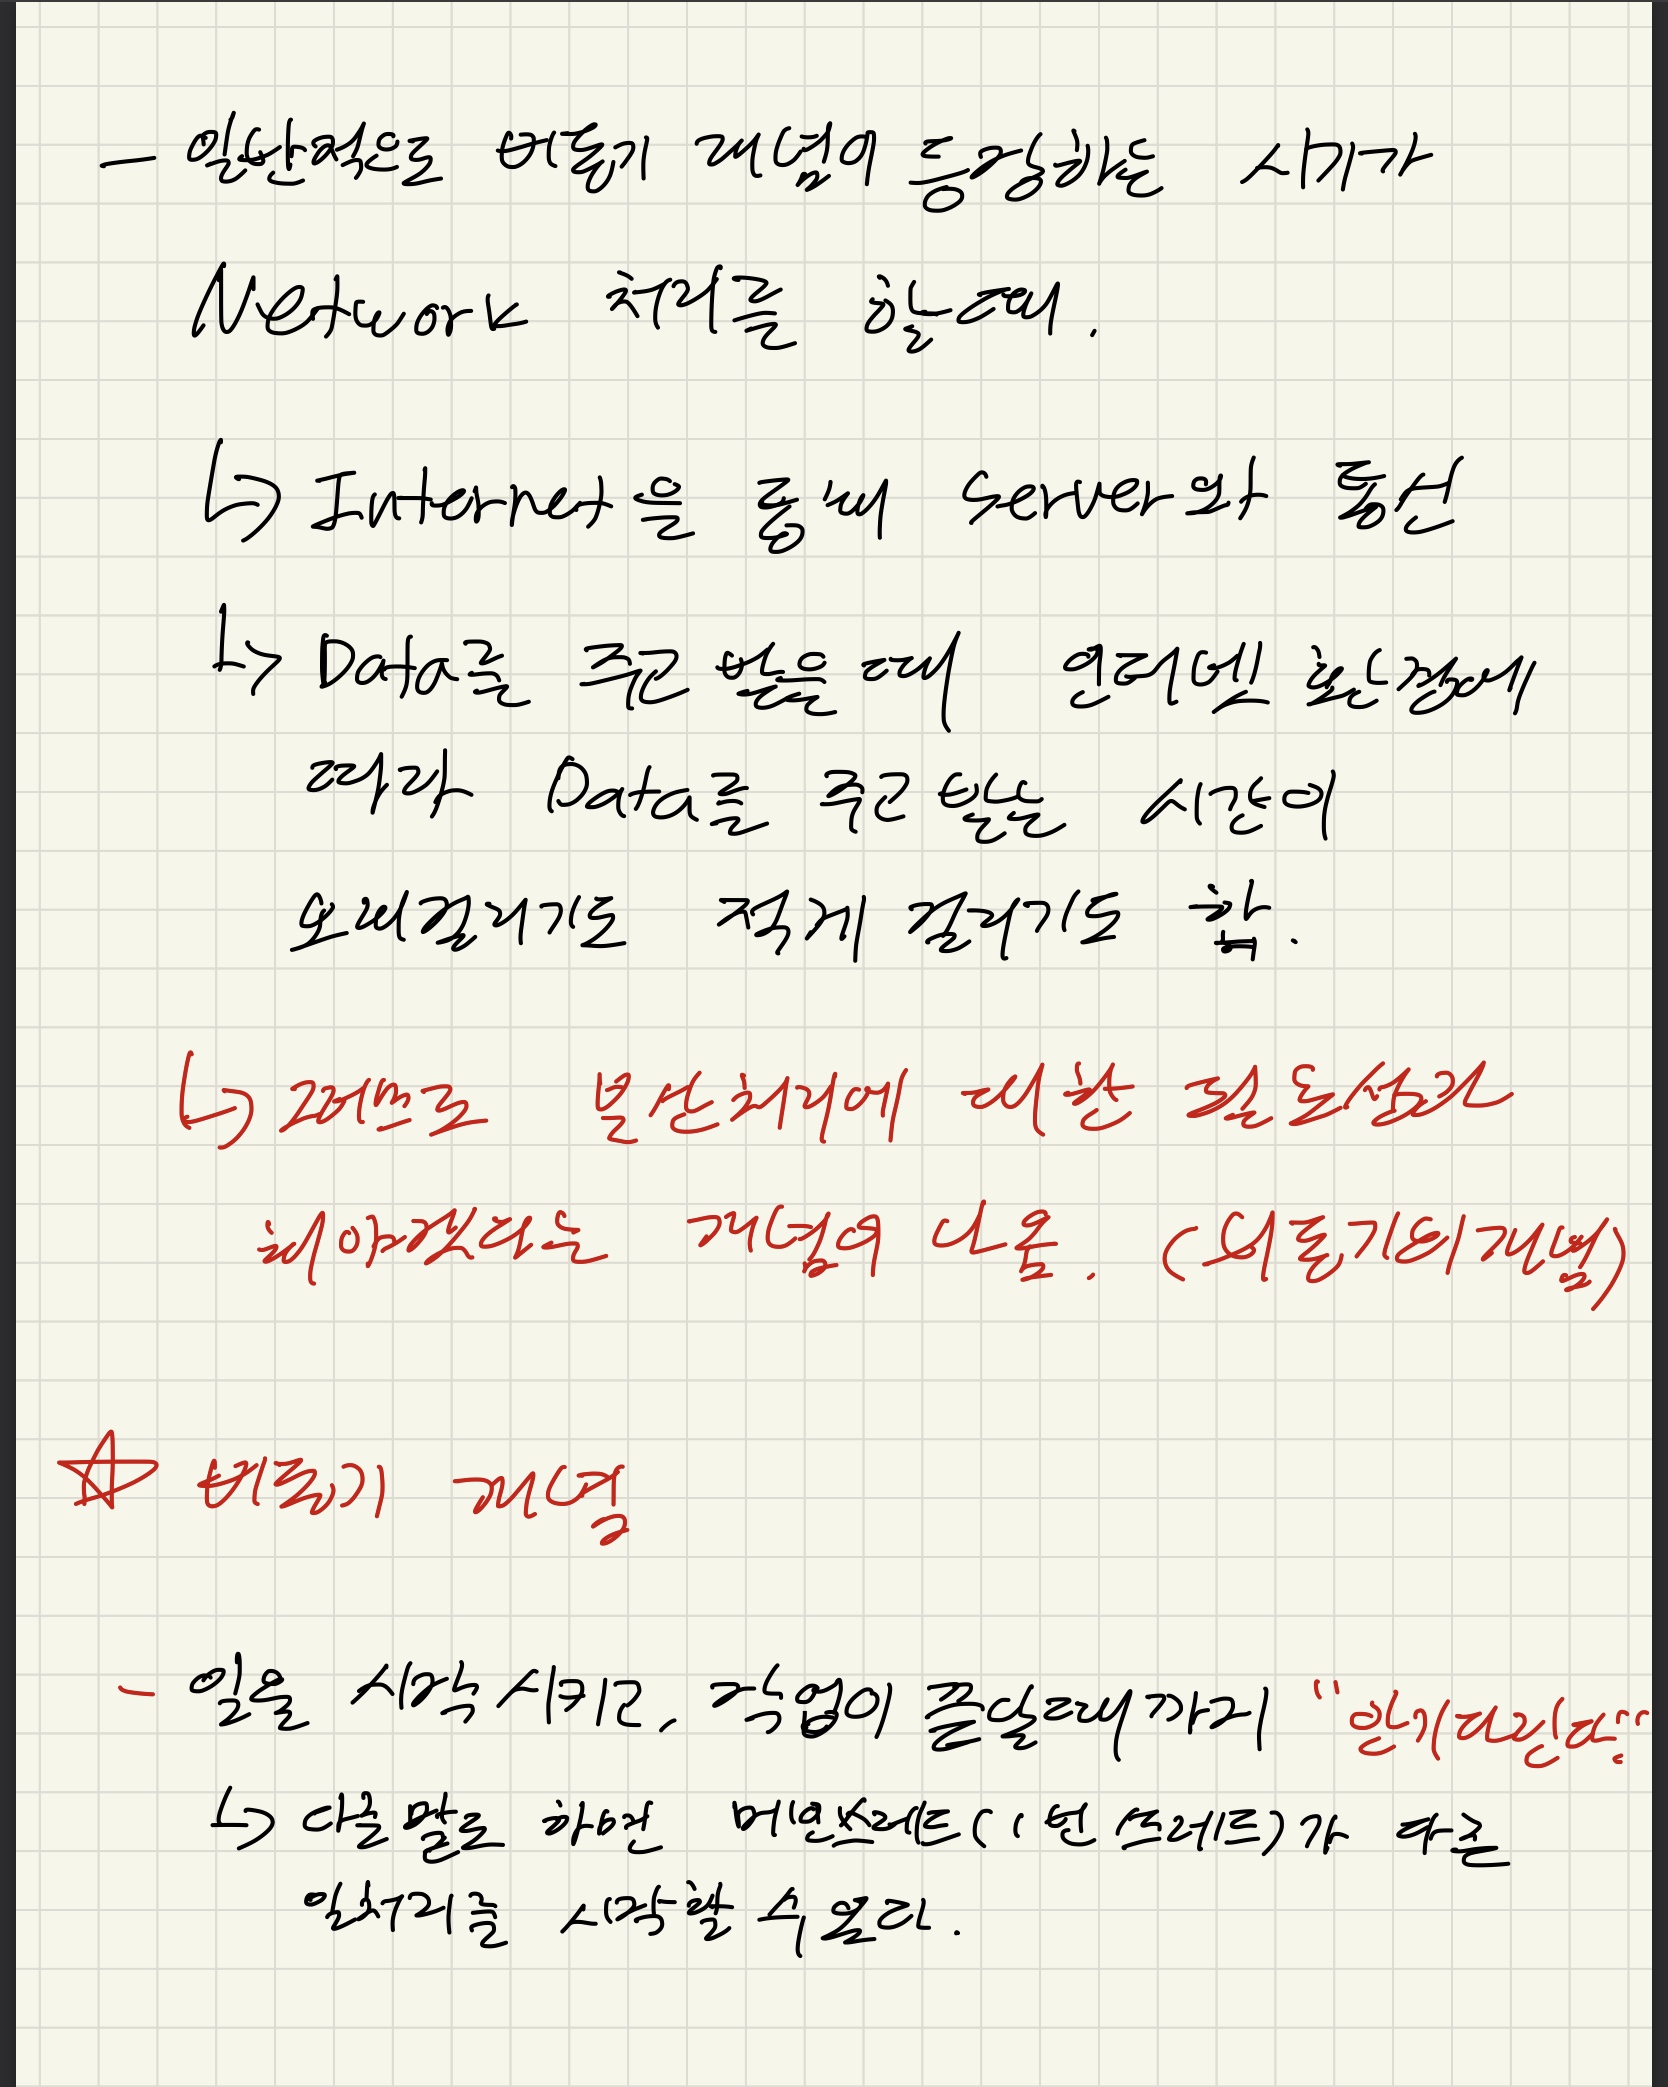 - 일반적으로 비동기 개념이 등장하는 시기가
Network 처리를 할때.
↳ Internet을 통해 Server와 통신
↳ Data를 주고 받을때 인터넷 환경에
따라 Data를 주고 받는 시간이
오래걸리기도 적게 걸리기도 함.
↳ 그러므로 분산처리에 대한 필요성과
해야겠다는 개념이 나옴. (비동기의 개념)
☆ 비동기 개념
- 일을 시작시키고, 작업이 끝날때까지 "안기다린다."
↳ 다른말로 하면 메인쓰레드(1번 쓰레드)가 다른
일처리를 시작할 수 있다.